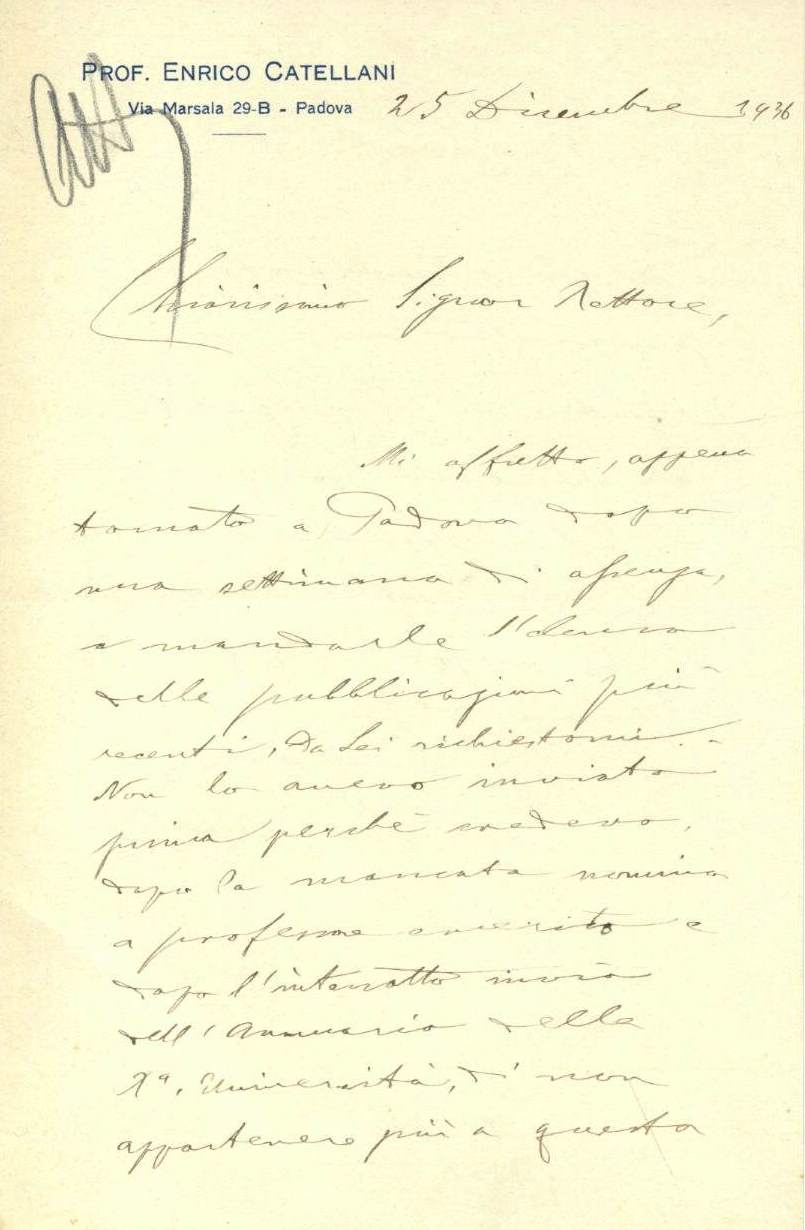 PROF. ENRICO CATELLANI
Via Marsala 29-B - Padova
25 Dicembre 1936
Chiarissimo Signor Rettore,
Mi affretto, appena
tornato a Padova dopo
una settimana di assenza,
a mandarle l'elenco
delle pubblicazioni più
recenti, da Lei richiestomi.-
Non lo avevo inviato
prima perchè credevo,
dopo la mancata nomina
a professore emerito e
dopo l'interrotto invio
dell'Annuario della
Rª. Università, di non
appartenere più a questa